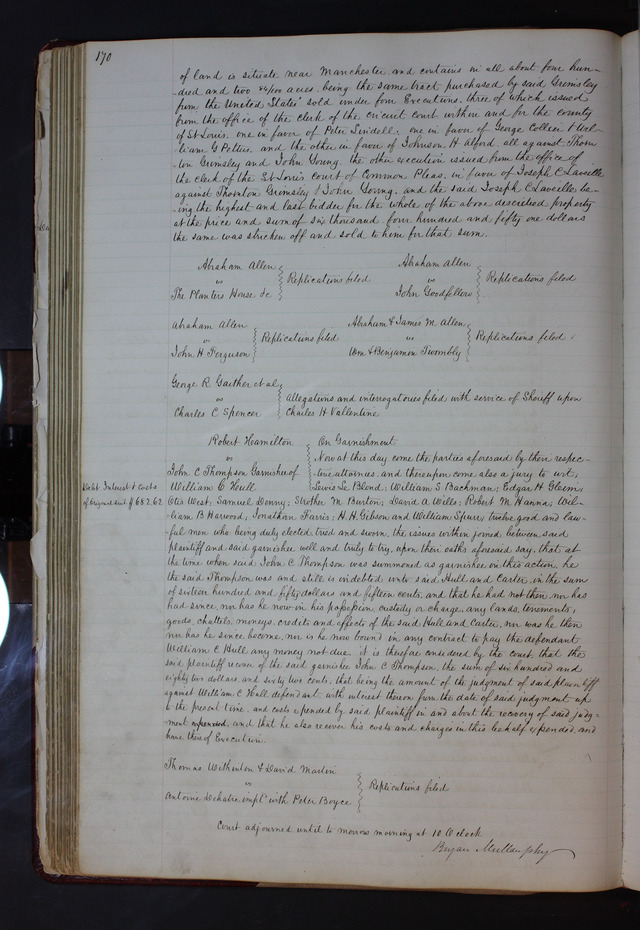 170
of land is situate near Manchester and contains in all about four hun-
dred and two 44/100 acres. being the same tract purchased by said Grimsley
from the United States' sold under four Executions. three of which issued
from the office of the clerk of the circuit court within and for the county
of St Louis, one in favor of Peter Lindell; one in favor of George Collier & Wil-
liam G Pettus, and the other in favor of Johnson H Alford, all against Thorn
ton Grimsley and John Young. the other execution issued from the office of
the clerk of the St Louis court of Common Pleas, in favor of Joseph C Laveille
against Thornton Grimsley & John Young, and the said Joseph C Laveille be-
ing the highest and last bidder for the whole of the above described property
at the price and sum of six thousand four hundred and fifty one dollars
the same was stricken off and sold to him for that sum.
Abraham Allen
vs
The Planters House &c
Replications filed
Abraham Allen
vs
John Goodfellow
Replications filed
Abraham Allen
vs
John H Ferguson
Replications filed
Abraham & James M Allen
vs
Wm & Benjamin Twombly
Replications filed
George R. Gaither et al
vs
Charles C Spencer
Allegations and interrogatories filed with service of Sheriff upon
Charles H Vallentine
Robert Hamilton
vs
John C Thompson Garnishee of
William C Hull
On Garnishment
Now at this day come the parties aforesaid by their respec-
tive attornies, and thereupon come also a jury to wit,
Lewis Le Blond; William S Bachman; Edgar H Gleim;
Debt Interest & Costs
of original suit $682,62
Otis West, Samuel Denny; Strother M Burton; David A Wills; Robert M Hanna, Wil-
liam B Harwood; Jonathan Farris; H.H. Gibson and William Spurr, twelve good and law-
ful men who being duly elected, tried and sworn, the issues within joined, between said
plaintiff and said garnishee well and truly to try, upon their oaths aforesaid say, that at
the time when said John C Thompson was summoned as garnishee in this action, he
the said Thompson was and still is indebted unto said Hull and Carter, in the sum
of sixteen hundred and fifty dollars and fifteen cents, and that he had not then nor has
had since, nor has he now in his possession custody or charge, any lands, tenements,
goods, chattels, moneys, credits and effects of the said Hull and Carter, nor was he then
nor has he since become, nor is he now bound in any contract to pay the defendant
William C Hull any money not due. it is therefore considered by the court, that the
said plaintiff recover of the said garnishee John C Thompson, the sum of six hundred and
eighty two dollars, and sixty two cents, that being the amount of the judgment of said plaintiff
against William C Hull defendant with interest thereon from the date of said judgment up
to the present time, and costs expended by said plaintiff in and about the recovery of said judg-
ment expended, and that he also recover his costs and charges in this behalf expended, and
have thereof Execution.
Thomas Witherton & David Martin
vs
Antoine Dechatre impl. with Peter Boyce
Replications filed
Court adjourned until to morrow morning at 10 O'clock
Bryan Mullanphy